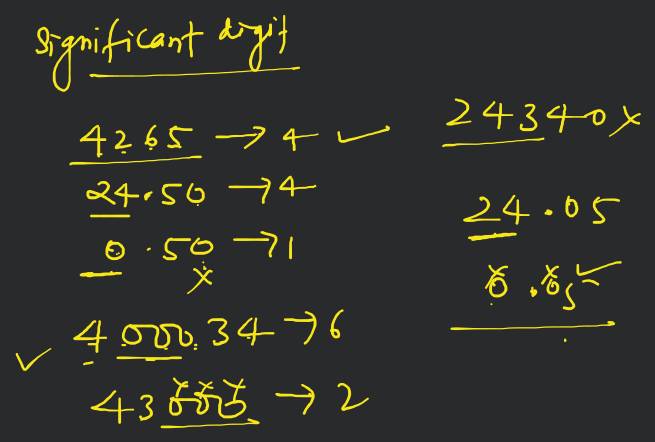 significant digit
4265 → 4 ✓
24.50 → 4
0.50 → 1
x
✓ 4000.34 → 6
43000 → 2
24340 x
24.05
0.05 ✓